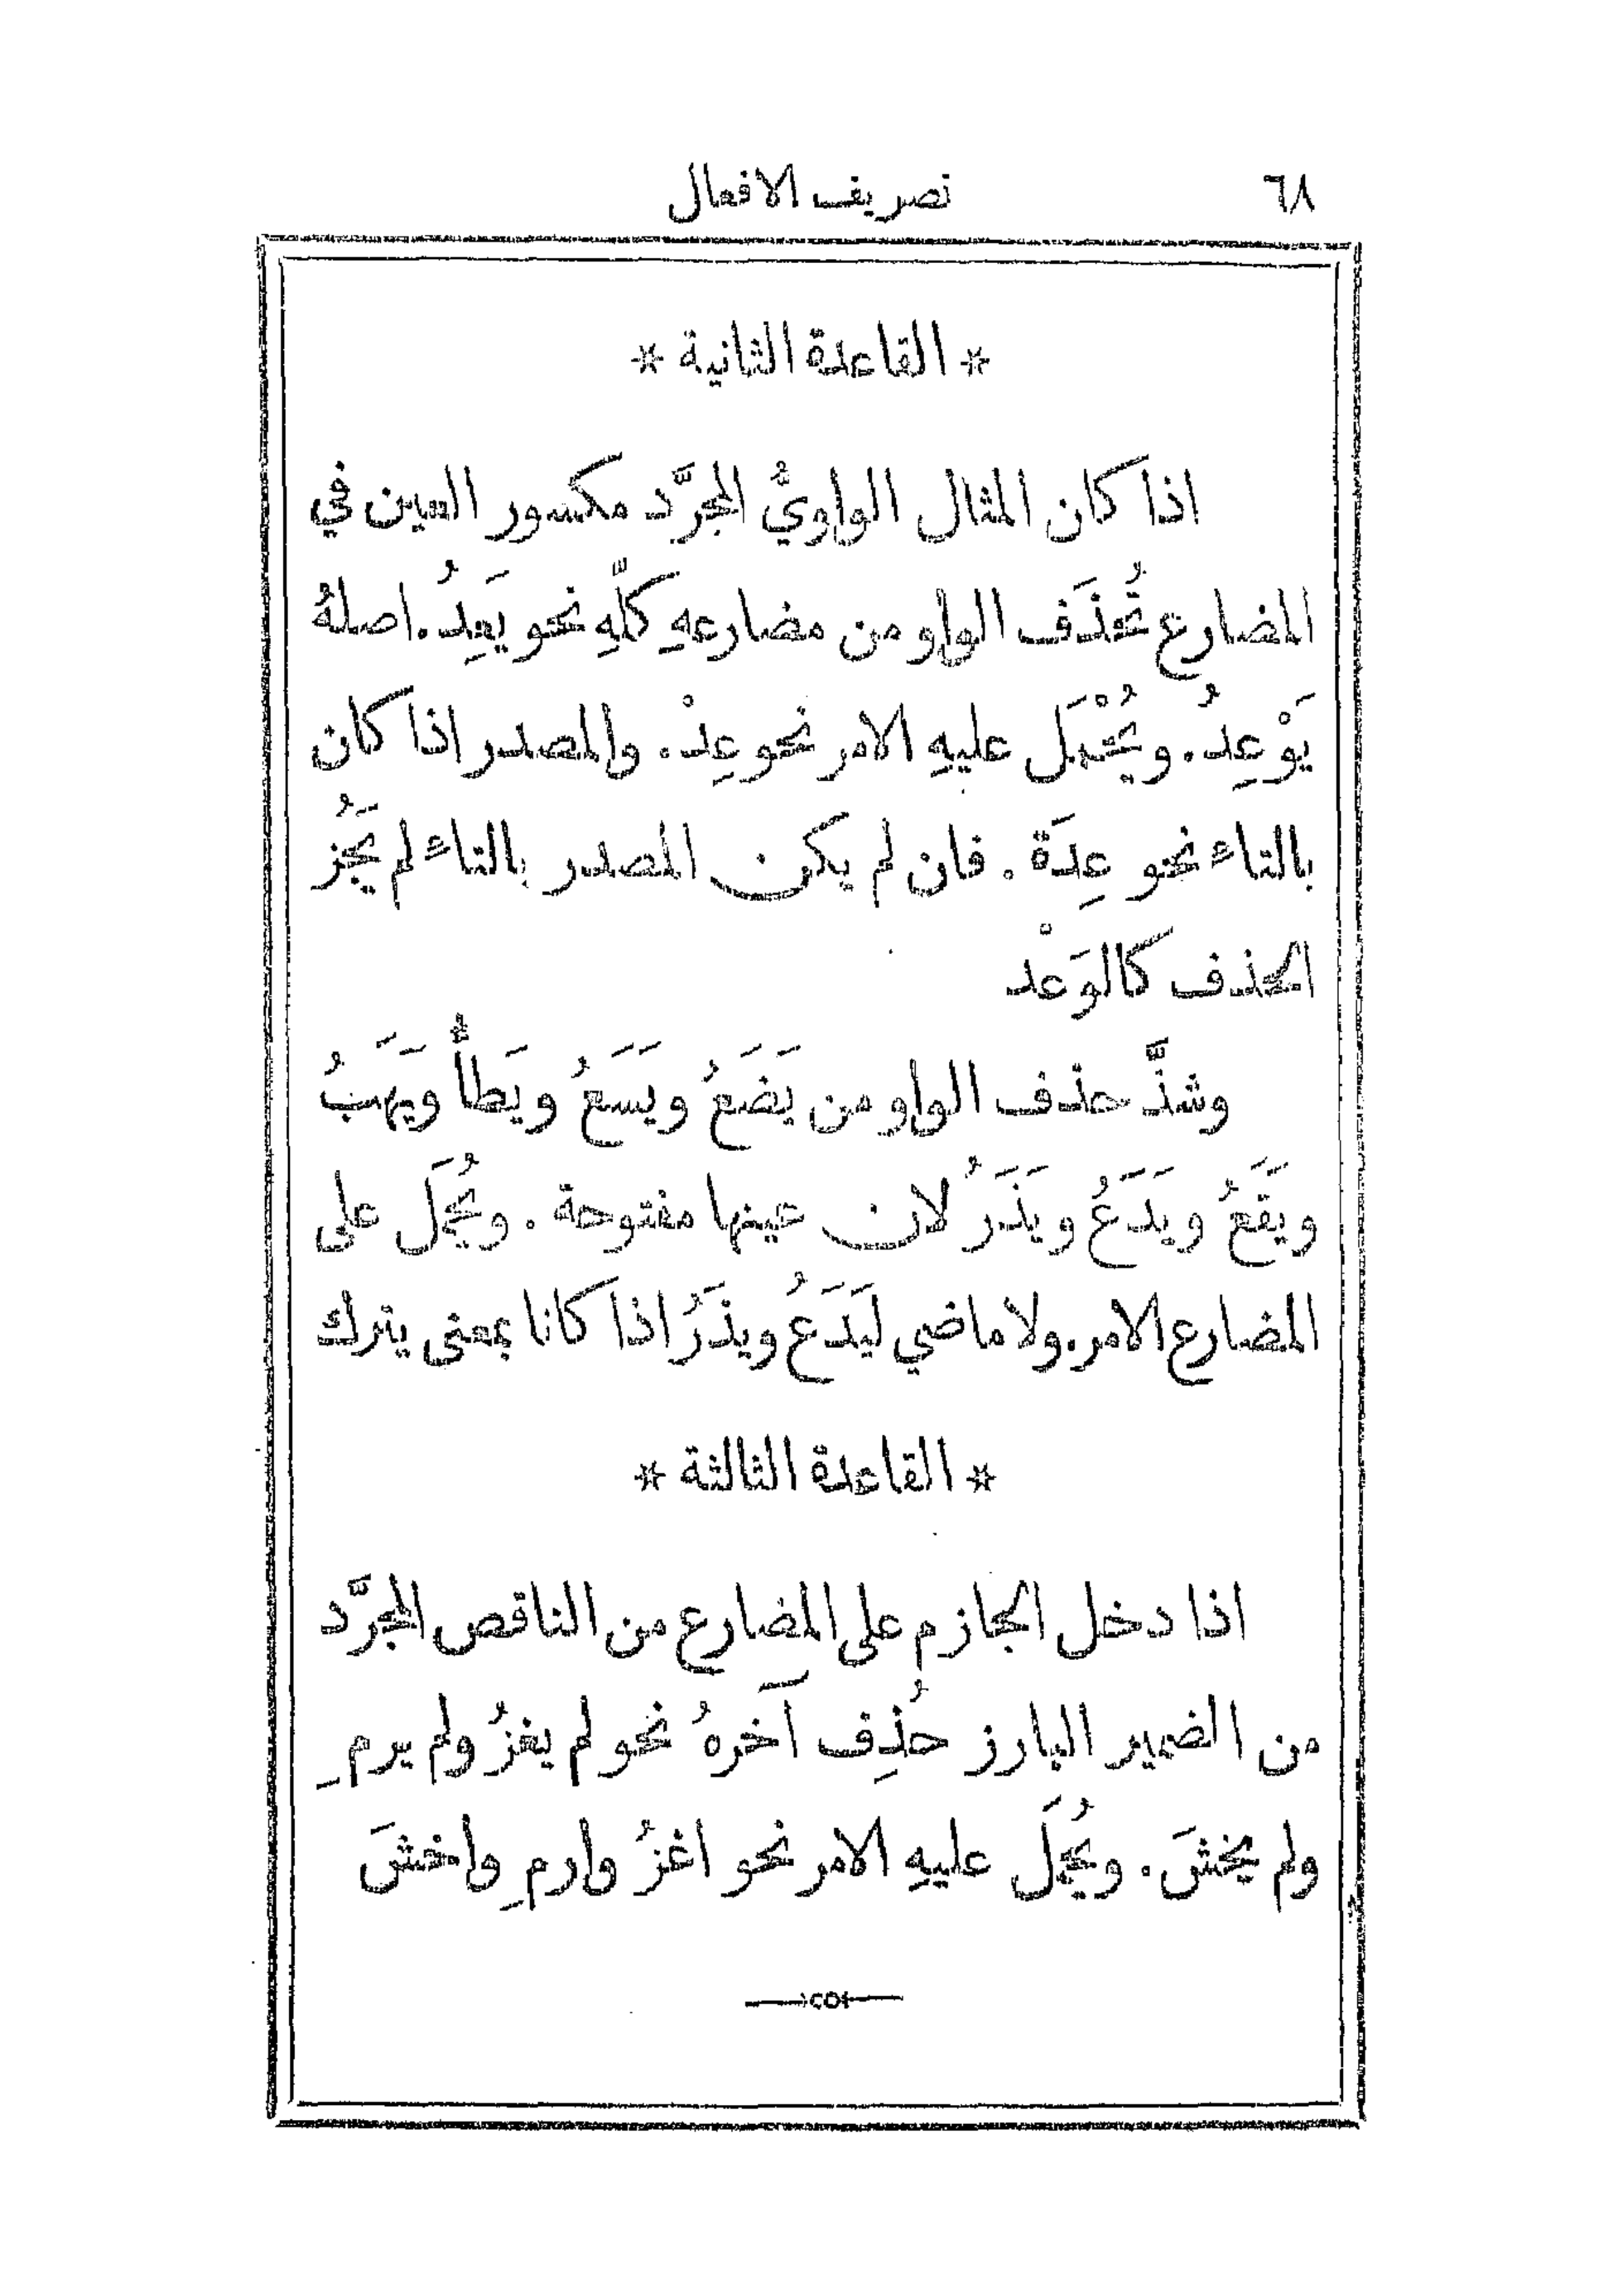 ٦٨ تصريف الافعال
* القاعدة الثانية *
اذا كان المثال الواويُّ المجرَّد مكسور العين في
المضارع تُحذَف الواو من مضارعهِ كلّهِ نحو يَعِدُ. اصلهُ
يَوْعِدُ. ويُحْمَل عليهِ الامر نحو عِدْ. والمصدر اذا كان
بالتاءً نحو عِدَة. فان لم يكن المصدر بالتاءً لم يَجُز
الحذف كالوَعْد
وشذَّ حذف الواو من يَضَعُ ويَسَعُ ويَطَأُ ويَهَبُ
ويَقَعُ ويَدَعُ ويَذَرُ لان عينها مفتوحة. ويُحمَل على
المضارع الامر. ولا ماضي لِيَدَعُ ويذَرُ اذا كانا بمعنى يترك
* القاعدة الثالثة *
اذا دخل الجازم على المضارع من الناقص المجرَّد
من الضمير البارز حُذِف آخرهُ نحو لم يغزُ ولم يرمِ
ولم يخشَ. ويُحمَل عليهِ الامر نحو اغزُ وارمِ واخشَ